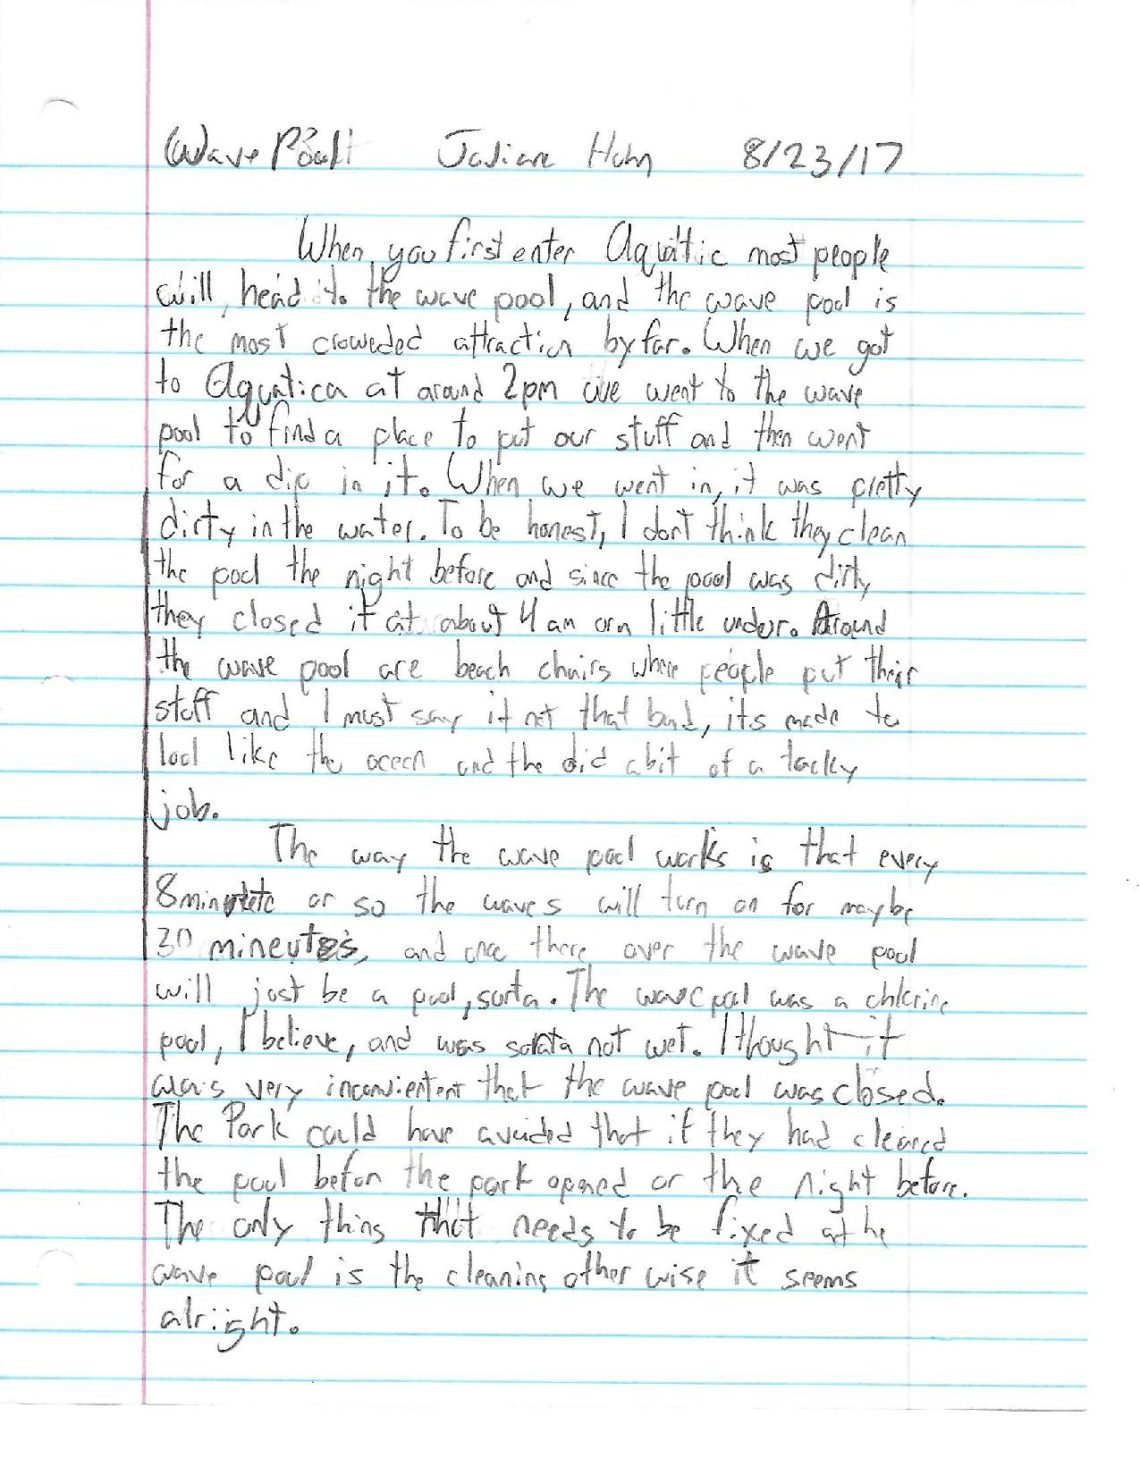 Wave Pool 8/23/17
When you first enter Aquatic most people
will head to the wave pool, and the wave pool is
the most croweded attraction by far. When we got
to Aquatica at around 2pm we went to the wave
pool to find a place to put our stuff and then went
for a dip in it. When we went in, it was pretty
dirty in the water. To be honest, I don't think they clean
the pool the night before and since the pool was dirty
they closed it at about 4 am or a little under. Around
the wave pool are beach chairs where people put their
stuff and I must say it not that bad, its made to
look like the ocean and the did a bit of a tacky
job.
The way the wave pool works is that every
8 minute or so the waves will turn on for maybe
30 mineutes, and once there over the wave pool
will just be a pool, sorta. The wave pool was a chlorine
pool, I believe, and was sorta not wet. I thought it
was very inconvientent that the wave pool was closed.
The Park could have avoided that if they had cleaned
the pool before the park opened or the night before.
The only thing that needs to be fixed at he
wave pool is the cleaning other wise it seems
alright.